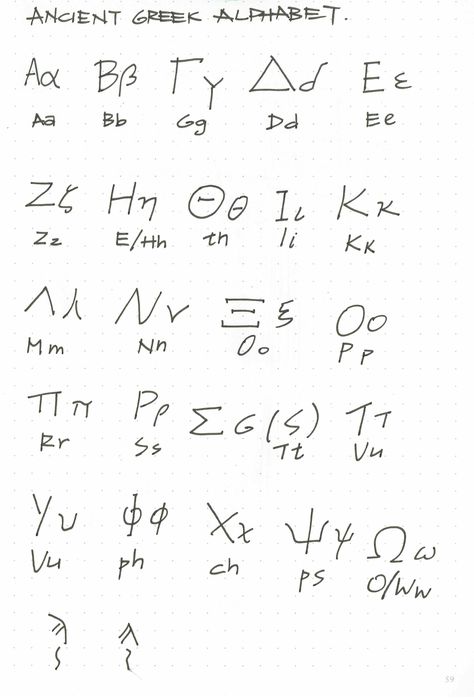 ANCIENT GREEK ALPHABET.
Αα Ββ Γγ Δδ Εε
Aa Bb Gg Dd Ee
Ζζ Ηη Θθ Ιι Κκ
Zz E/Hh th Ii Kk
Λλ Νν Ξξ Οο
Mm Nn Oo Pp
Ππ Ρρ Σσ(ς) Ττ
Rr Ss Tt Vu
Υυ Φφ Χχ Ψψ Ωω
Vu ph ch ps O/Ww
59